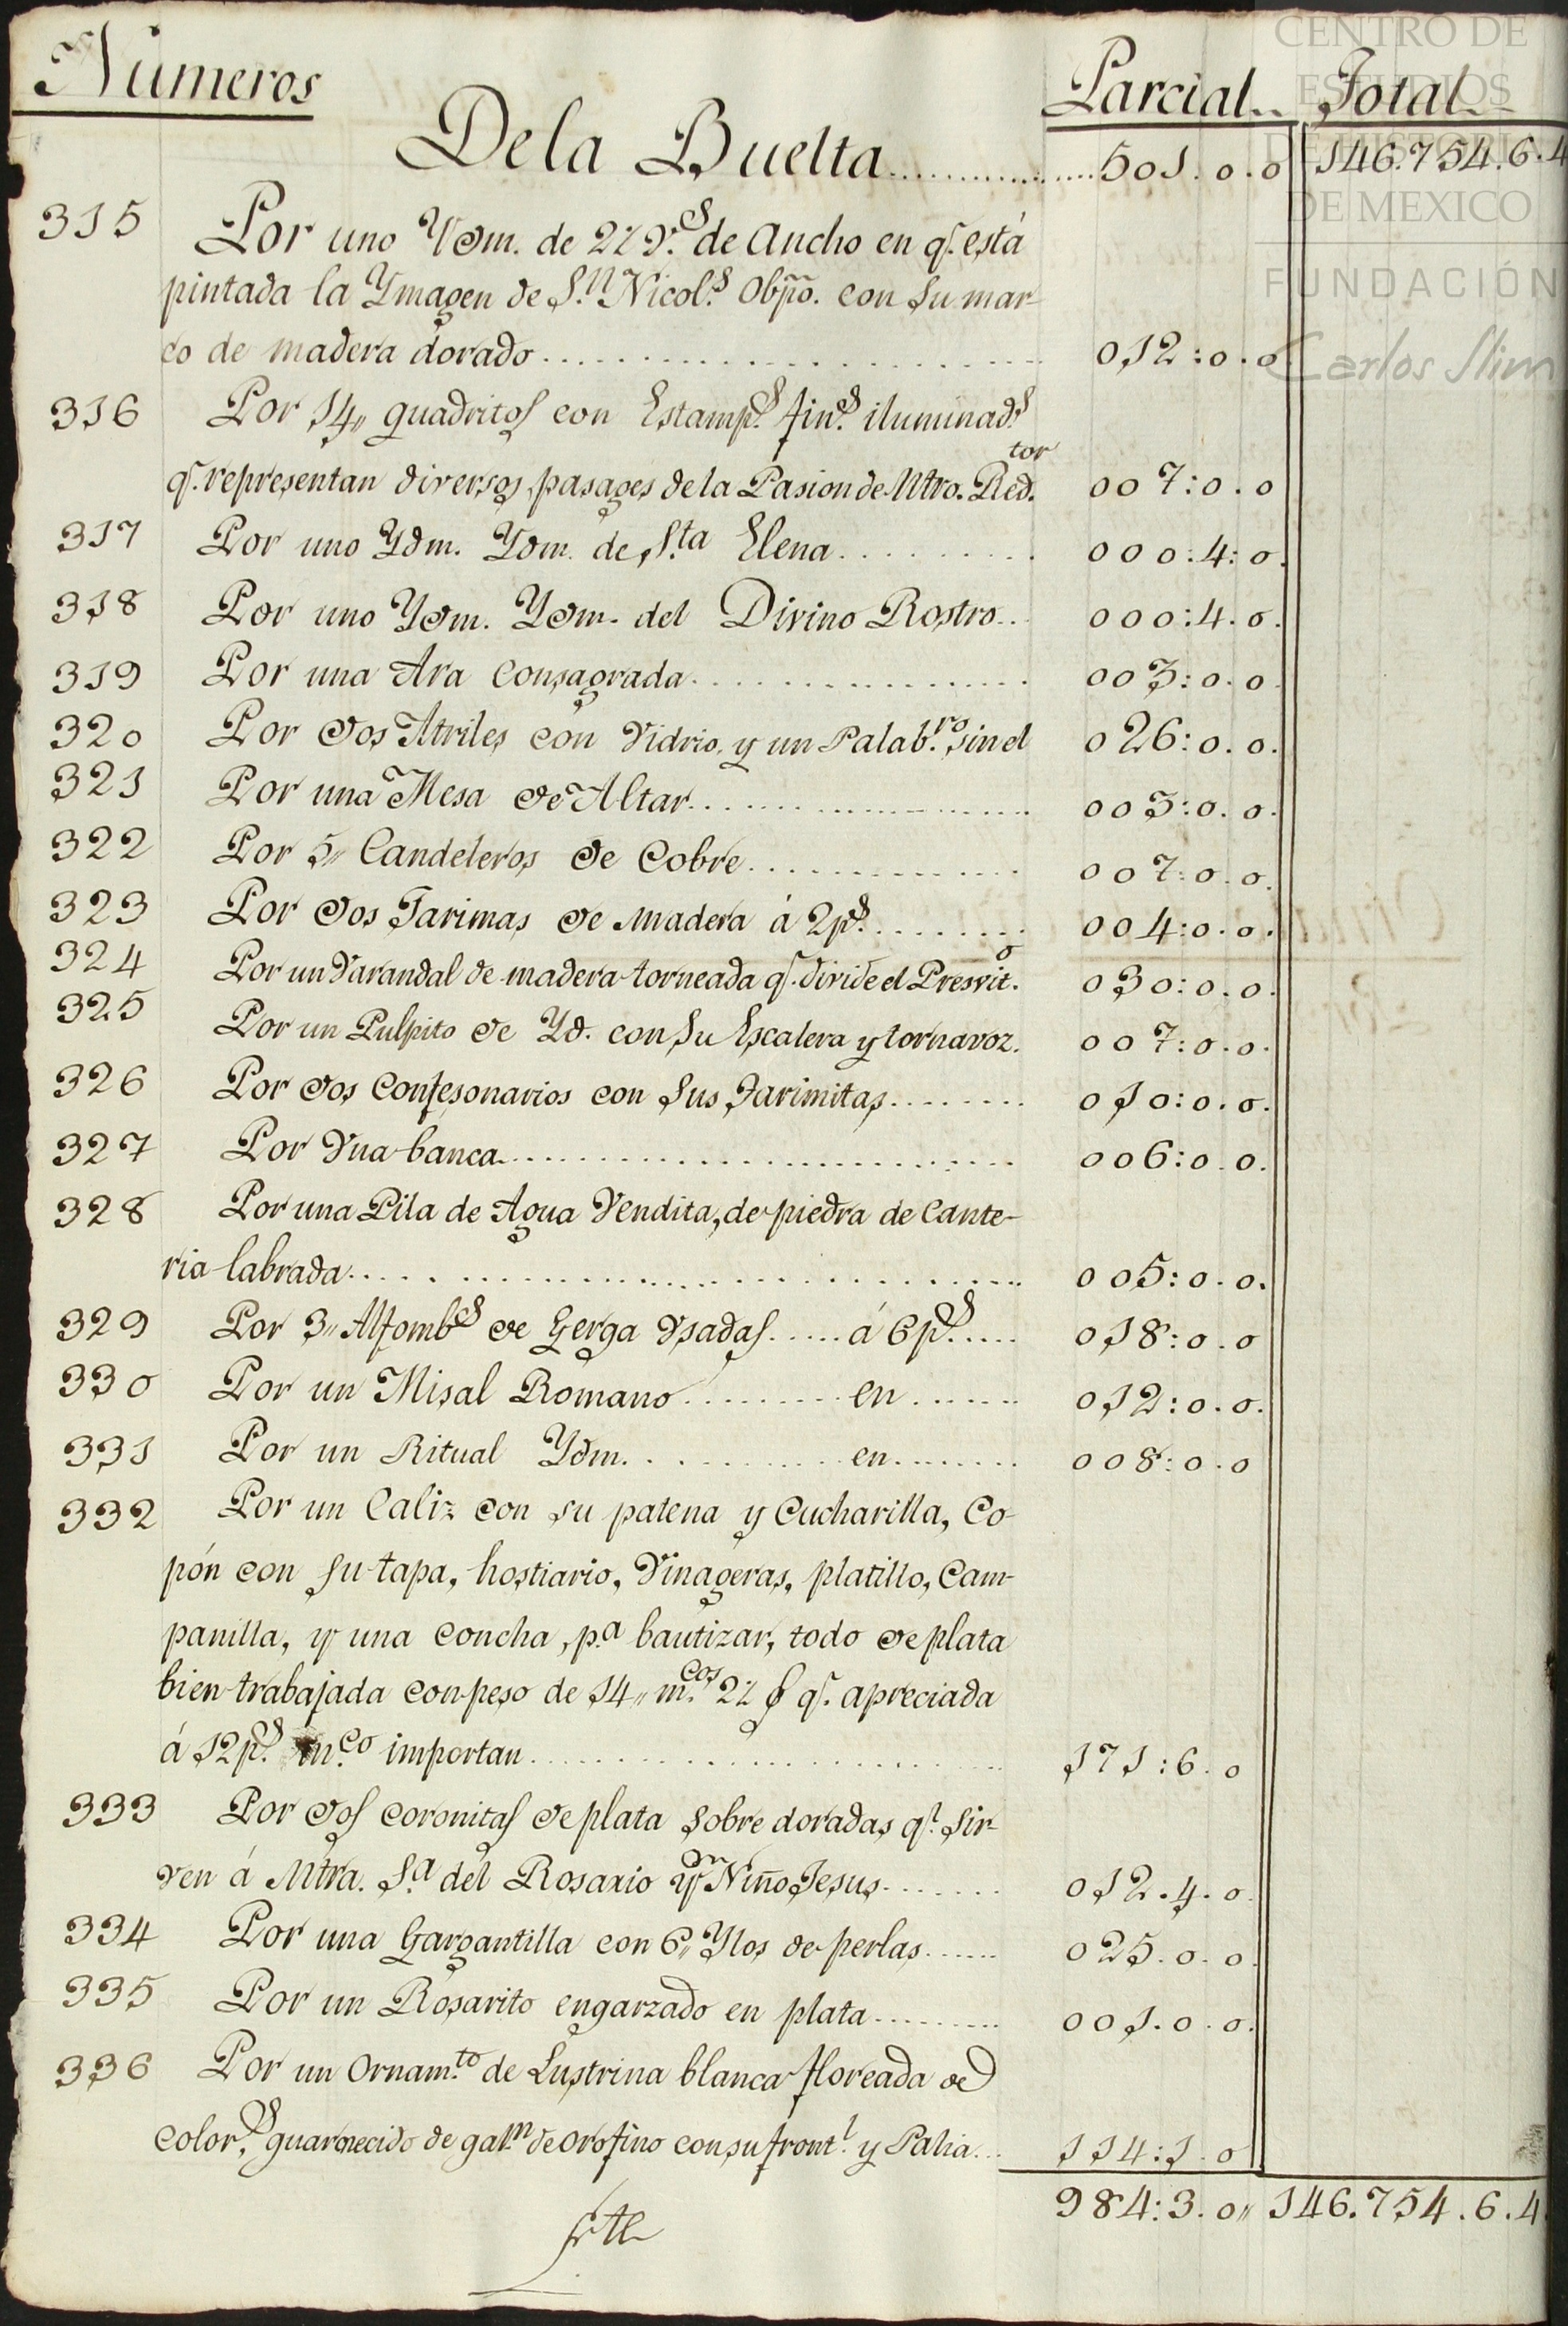 Números Parcial Total
De la Buelta 501.0.0 146.754.6.4
315 Por uno Ydm. de 2½ v.s de Ancho en q.e está
pintada la Ymagen de S.n Nicol.s Obpõ. con su mar-
co de madera dorado 012:0.0
316 Por 14,, quadritos con Estamp.s fin.s iluminad.s
q.e representan diversos pasages de la Pasion de Ntro. Red.tor 007:0.0
317 Por uno Ydm. Ydm. de S.ta Elena 000:4:0.
318 Por uno Ydm. Ydm. del Divino Rostro 000:4.0.
319 Por una Ara Consagrada 003:0.0
320 Por dos Atriles con vidrio, y un Palab.ro sin el 026:0.0.
321 Por una Mesa de Altar 003:0.0.
322 Por 5,, Candeleros de Cobre 007:0.0.
323 Por dos Tarimas de madera á 2p.s 004:0.0.
324 Por un Varandal de madera torneada q.e divide el Presvit.o 030:0.0.
325 Por un Pulpito de Yd. con su Escalera y tornavoz. 007:0.0.
326 Por dos Confesonarios con sus Tarimitas 010:0.0.
327 Por Vna banca 006:0.0.
328 Por una Pila de Agua Vendita, de piedra de Cante-
ria labrada 005:0.0.
329 Por 3,, Alfomb.s de Gerga Vsadas á 6p.s 018:0.0
330 Por un Misal Romano en 012:0.0.
331 Por un Ritual Ydm. en 008:0.0
332 Por un Caliz con su patena y Cucharilla, Co-
pón con su tapa, hostiario, Vinageras, platillo, Cam-
panilla, y una concha, p.a bautizar, todo de plata
bien trabajada con peso de 14,, m.cos 2½ q.e apreciada
á 12p.s m.co importan 171:6.0
333 Por dos coronitas de plata sobre doradas q.e sir-
ven á Ntra. S.a del Rosario y Niño Jesus 012.4.0.
334 Por una Gargantilla con 6,, Ylos de perlas 025.0.0
335 Por un Rosarito engarzado en plata 001.0.0.
336 Por un Ornam.to de Lustrina blanca floreada de
color.s guarnecido de gal.n de oro fino con su front.l y Palia 114:1.0
984:3.0,, 146.754.6.4
CENTRO DE
ESTUDIOS
DE HISTORIA
DE MEXICO
FUNDACIÓN
Carlos Slim